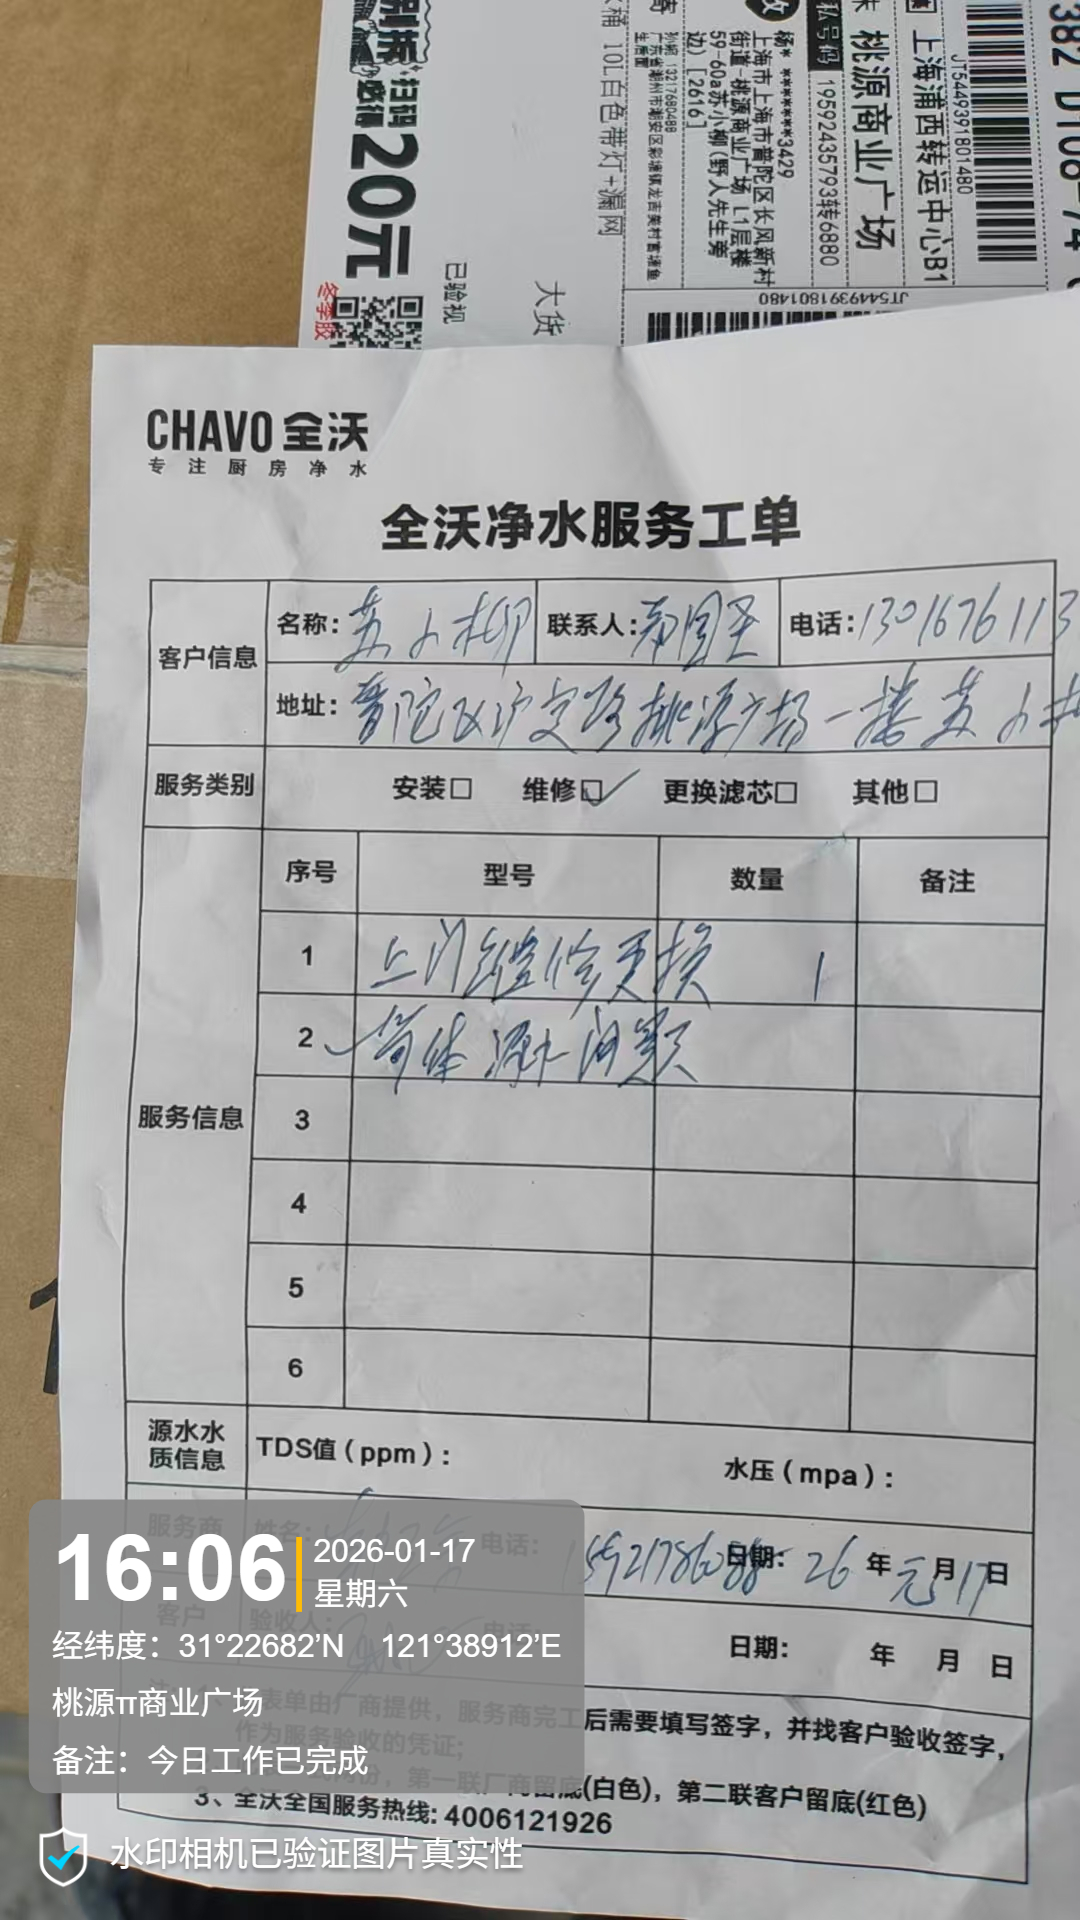 扫码
必得
20元
冬季胶
已验视
大货
10L白色带灯+漏网
杨* ********3429
上海市上海市普陀区长风新村
街道-桃源商业广场 L1层楼
59-60a苏小柳(野人先生旁
边)[2616]
19592435793转6880
桃源商业广场
上海浦西转运中心B1
JT5449391801480
JT5449391801480
382 D108-74
CHAVO 全沃
专注厨房净水
全沃净水服务工单
客户信息
名称：苏小柳
联系人：
电话：1301676113
地址：普陀区沪定路桃源广场一楼苏小
服务类别
安装□ 维修☑ 更换滤芯□ 其他□
服务信息
序号 型号 数量 备注
1 上门维修更换 1
2 筒体漏水问题
3
4
5
6
源水水
质信息
TDS值（ppm）：
水压（mpa）：
服务商 姓名： 电话：15921786088 日期：26年元月17日
客户 验收人： 电话： 日期： 年 月 日
表单由厂商提供，服务商完工后需要填写签字，并找客户验收签字，
作为服务验收的凭证；
第一联厂商留底(白色)，第二联客户留底(红色)
3、全沃全国服务热线: 4006121926
16:06
2026-01-17
星期六
经纬度：31°22682’N 121°38912’E
桃源π商业广场
备注：今日工作已完成
水印相机已验证图片真实性